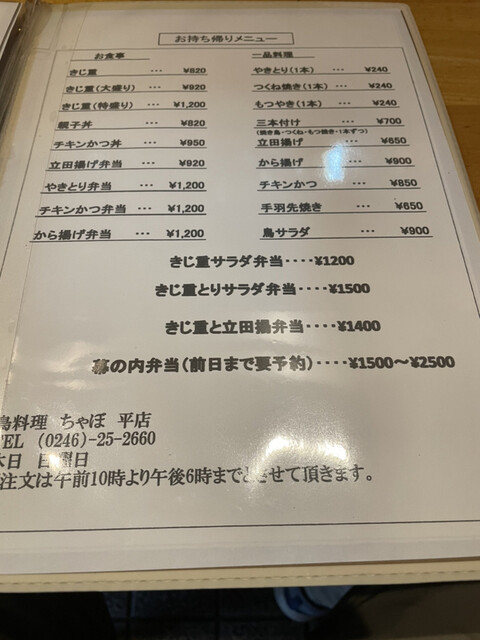 お持ち帰りメニュー
お食事
きじ重 ・・・ ¥820
きじ重(大盛り) ・・・ ¥920
きじ重(特盛り) ・・・ ¥1,200
親子丼 ・・・ ¥820
チキンかつ丼 ・・・ ¥950
立田揚げ弁当 ・・・ ¥920
やきとり弁当 ・・・ ¥1,200
チキンかつ弁当 ・・・ ¥1,200
から揚げ弁当 ・・・ ¥1,200
一品料理
やきとり(1本) ・・・ ¥240
つくね焼き(1本) ・・・ ¥240
もつやき(1本) ・・・ ¥240
三本付け ・・・ ¥700
(焼き鳥・つくね・もつ焼き・1本ずつ)
立田揚げ ・・・ ¥650
から揚げ ・・・ ¥900
チキンかつ ・・・ ¥850
手羽先焼き ・・・ ¥650
鳥サラダ ・・・ ¥900
きじ重サラダ弁当・・・・¥1200
きじ重とりサラダ弁当・・・・¥1500
きじ重と立田揚弁当・・・・¥1400
幕の内弁当(前日まで要予約)・・・・¥1500～¥2500
鳥料理 ちゃぼ 平店
TEL (0246)-25-2660
休日 日曜日
注文は午前10時より午後6時までとさせて頂きます。